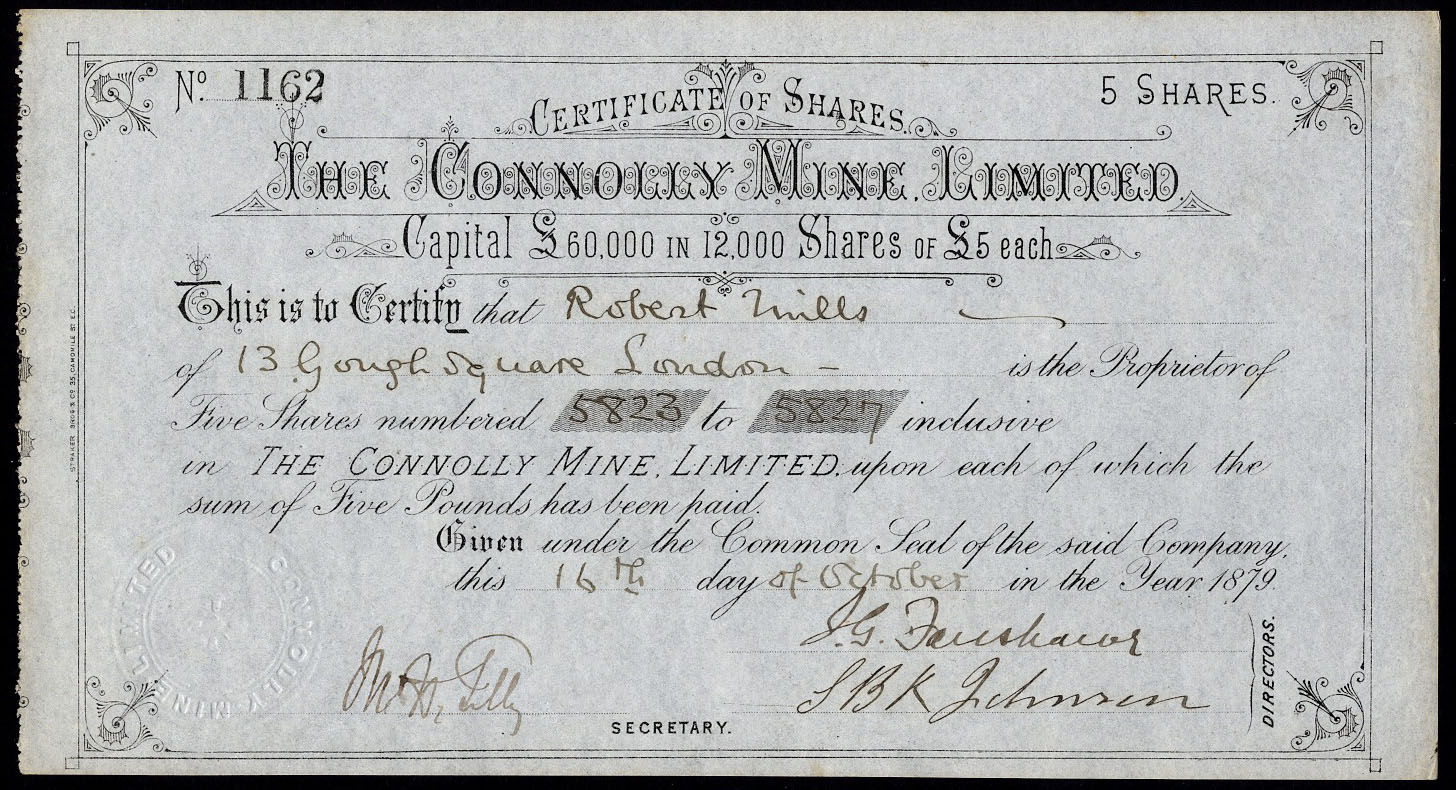 No. 1162
5 SHARES.
CERTIFICATE OF SHARES.
THE CONNOLLY MINE, LIMITED.
Capital £60,000 IN 12,000 Shares OF £5 each
This is to Certify that Robert Mills
of 13 Gough Square London – is the Proprietor of
Five Shares numbered 5823 to 5827 inclusive
in THE CONNOLLY MINE, LIMITED, upon each of which the
sum of Five Pounds has been paid.
Given under the Common Seal of the said Company,
this 16th day of October in the Year 1879.
J.G. Fanshawe
S B K Johnson
DIRECTORS.
SECRETARY.
CONNOLLY MINE LIMITED
STRAKER BROS & CO 35, CAMOMILE ST E.C.